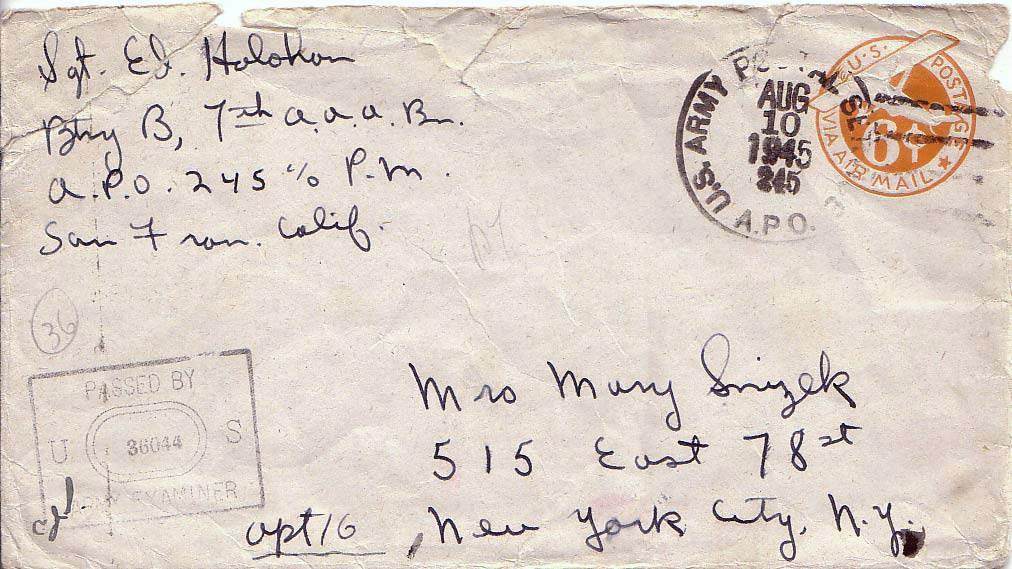 Sgt. Ed. Holohan
Btry B, 7th a.a.a. Bn.
a.P.O. 245 c/o P.M.
San Fran. Calif.
U.S. ARMY POSTAL SE
AUG
10
1945
245
A.P.O.
U.S. POSTAGE
6¢
VIA AIR MAIL
36
PASSED BY
U 36044 S
ARMY EXAMINER
Mrs Mary Snizek
515 East 78st
apt 16 New York City, N.Y.